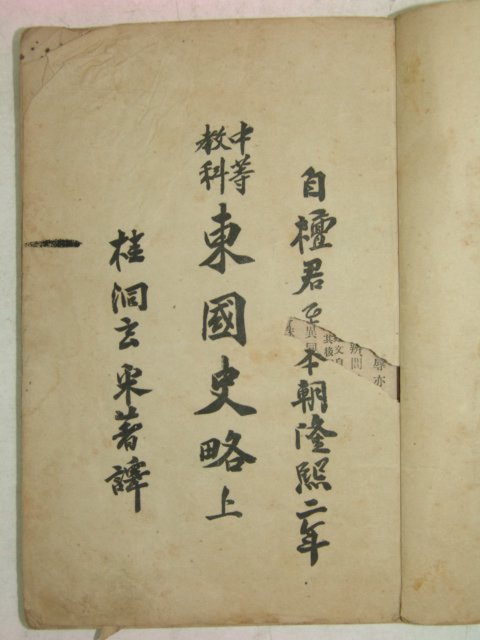 自檀君至本朝隆熙二年
中等
敎科
東國史略上
桂洞玄采著譯